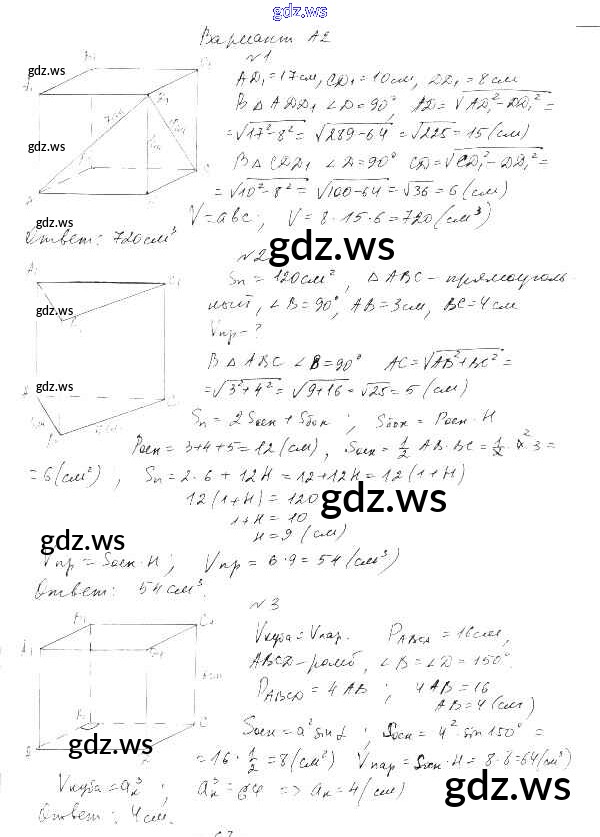 gdz.ws
Вариант А2
№1
AD₁ = 17см, CD₁ = 10см, DD₁ = 8см
В △ ADD₁ ∠D = 90°, AD = √(AD₁² - DD₁²) =
= √(17² - 8²) = √(289 - 64) = √225 = 15 (см)
В △ CDD₁ ∠D = 90° CD = √(CD₁² - DD₁²) =
= √(10² - 8²) = √(100 - 64) = √36 = 6 (см)
V = abc; V = 8 · 15 · 6 = 720 (см³)
Ответ: 720 см³
№2
Sп = 120см², △ ABC - прямоуголь-
ный, ∠B = 90°, AB = 3см, BC = 4см
Vпр - ?
В △ ABC ∠B = 90° AC = √(AB² + BC²) =
= √(3² + 4²) = √(9 + 16) = √25 = 5 (см)
Sп = 2Sосн + Sбок ; Sбок = Pосн · H
Pосн = 3 + 4 + 5 = 12 (см), Sосн = 1/2 AB · BC = 1/2 · 4 · 3 =
= 6 (см²) ; Sп = 2 · 6 + 12H = 12 + 12H = 12 (1 + H)
12 (1 + H) = 120
1 + H = 10
H = 9 (см)
Vпр = Sосн · H ; Vпр = 6 · 9 = 54 (см³)
Ответ: 54 см³.
№3
Vкуба = Vпар. PABCD = 16см,
ABCD - ромб, ∠B = ∠D = 150°.
PABCD = 4AB ; 4AB = 16
AB = 4 (см)
Sосн = a² sin α ; Sосн = 4² · sin 150° =
= 16 · 1/2 = 8 (см²) Vпар = Sосн · H = 8 · 8 = 64 (см³)
Vкуба = aк³ ; aк³ = 64 => aк = 4 (см)
Ответ: 4 см.
gdz.ws
gdz.ws
gdz.ws
gdz.ws
gdz.ws
gdz.ws
gdz.ws
gdz.ws
gdz.ws
gdz.ws